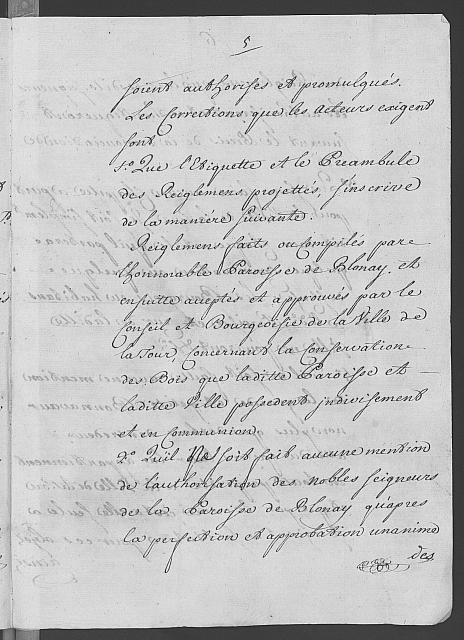 5
soient authorises et promulqués.
Les Corrections que les Acteurs exigent
sont
1.º Que l'Etiquette et le Preambule
des Reiglemens projettés, s'inscrive
de la maniére suivante.
Reiglemens faits ou Compilés par
l'honnorable Paroisse de Blonay, et
ensuitte aceptés et approuvés par le
Conseil et Bourgeoisie de la Ville de
la Tour, Concernant la Conservation
des Bois que laditte Paroisse et
laditte Ville possedent indivisement
et en Communion
2.º Qu'il ne soit fait aucune mention
de l'authorisation des nobles seigneurs
de la Paroisse de Blonay qu'apres
la perfection et approbation unanime
des